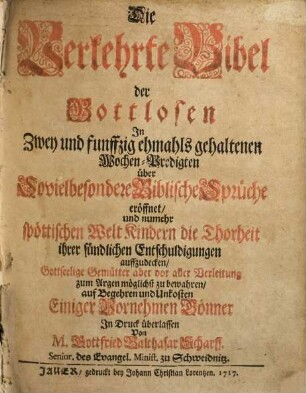 Die
Verkehrte Bibel
der
Gottlosen
In
Zwey und funffzig ehmahls gehaltenen
Wochen-Predigten
über
Sovielbesondere Biblische Sprüche
eröffnet/
und numehr
spöttischen Welt Kindern die Thorheit
ihrer sündlichen Entschuldigungen
auffzudecken/
Gottseelige Gemütter aber vor aller Verleitung
zum Argen möglichst zu bewahren/
auf Begehren und Unkosten
Einiger Vornehmen Gönner
In Druck überlassen
Von
M. Gottfried Balthasar Scharff.
Senior. des Evangel. Minist. zu Schweidnitz.
JAUER/ gedruckt bey Johann Christian Lorentzen. 1717.